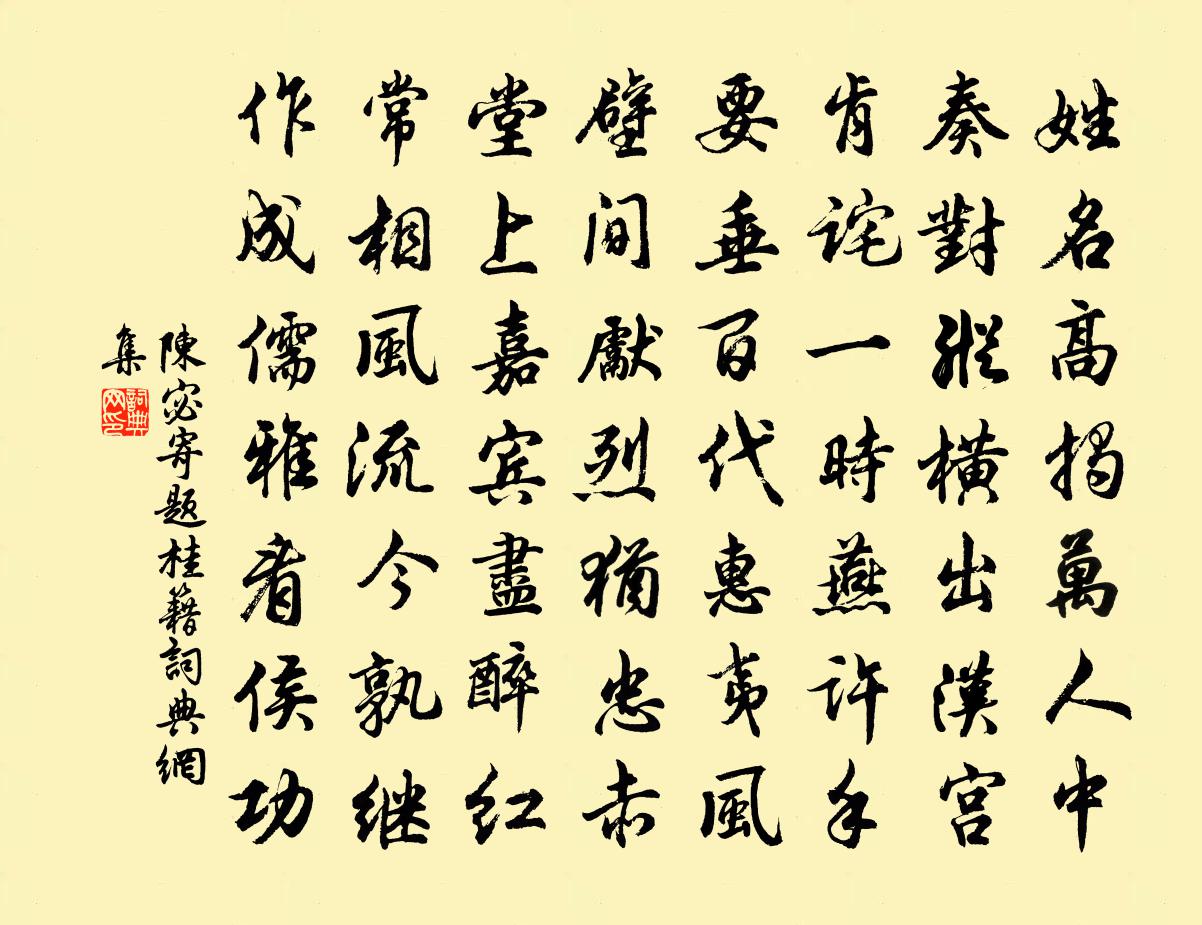 姓名高揭萬人中
奏對縱橫出漢宮
肯詫一時燕許手
要垂百代惠夷風
壁間獻烈猶忠赤
堂上嘉賓盡醉紅
常相風流今孰继
作成儒雅看侯功
陳宓寄題桂籍詞典網
集
詞典网印